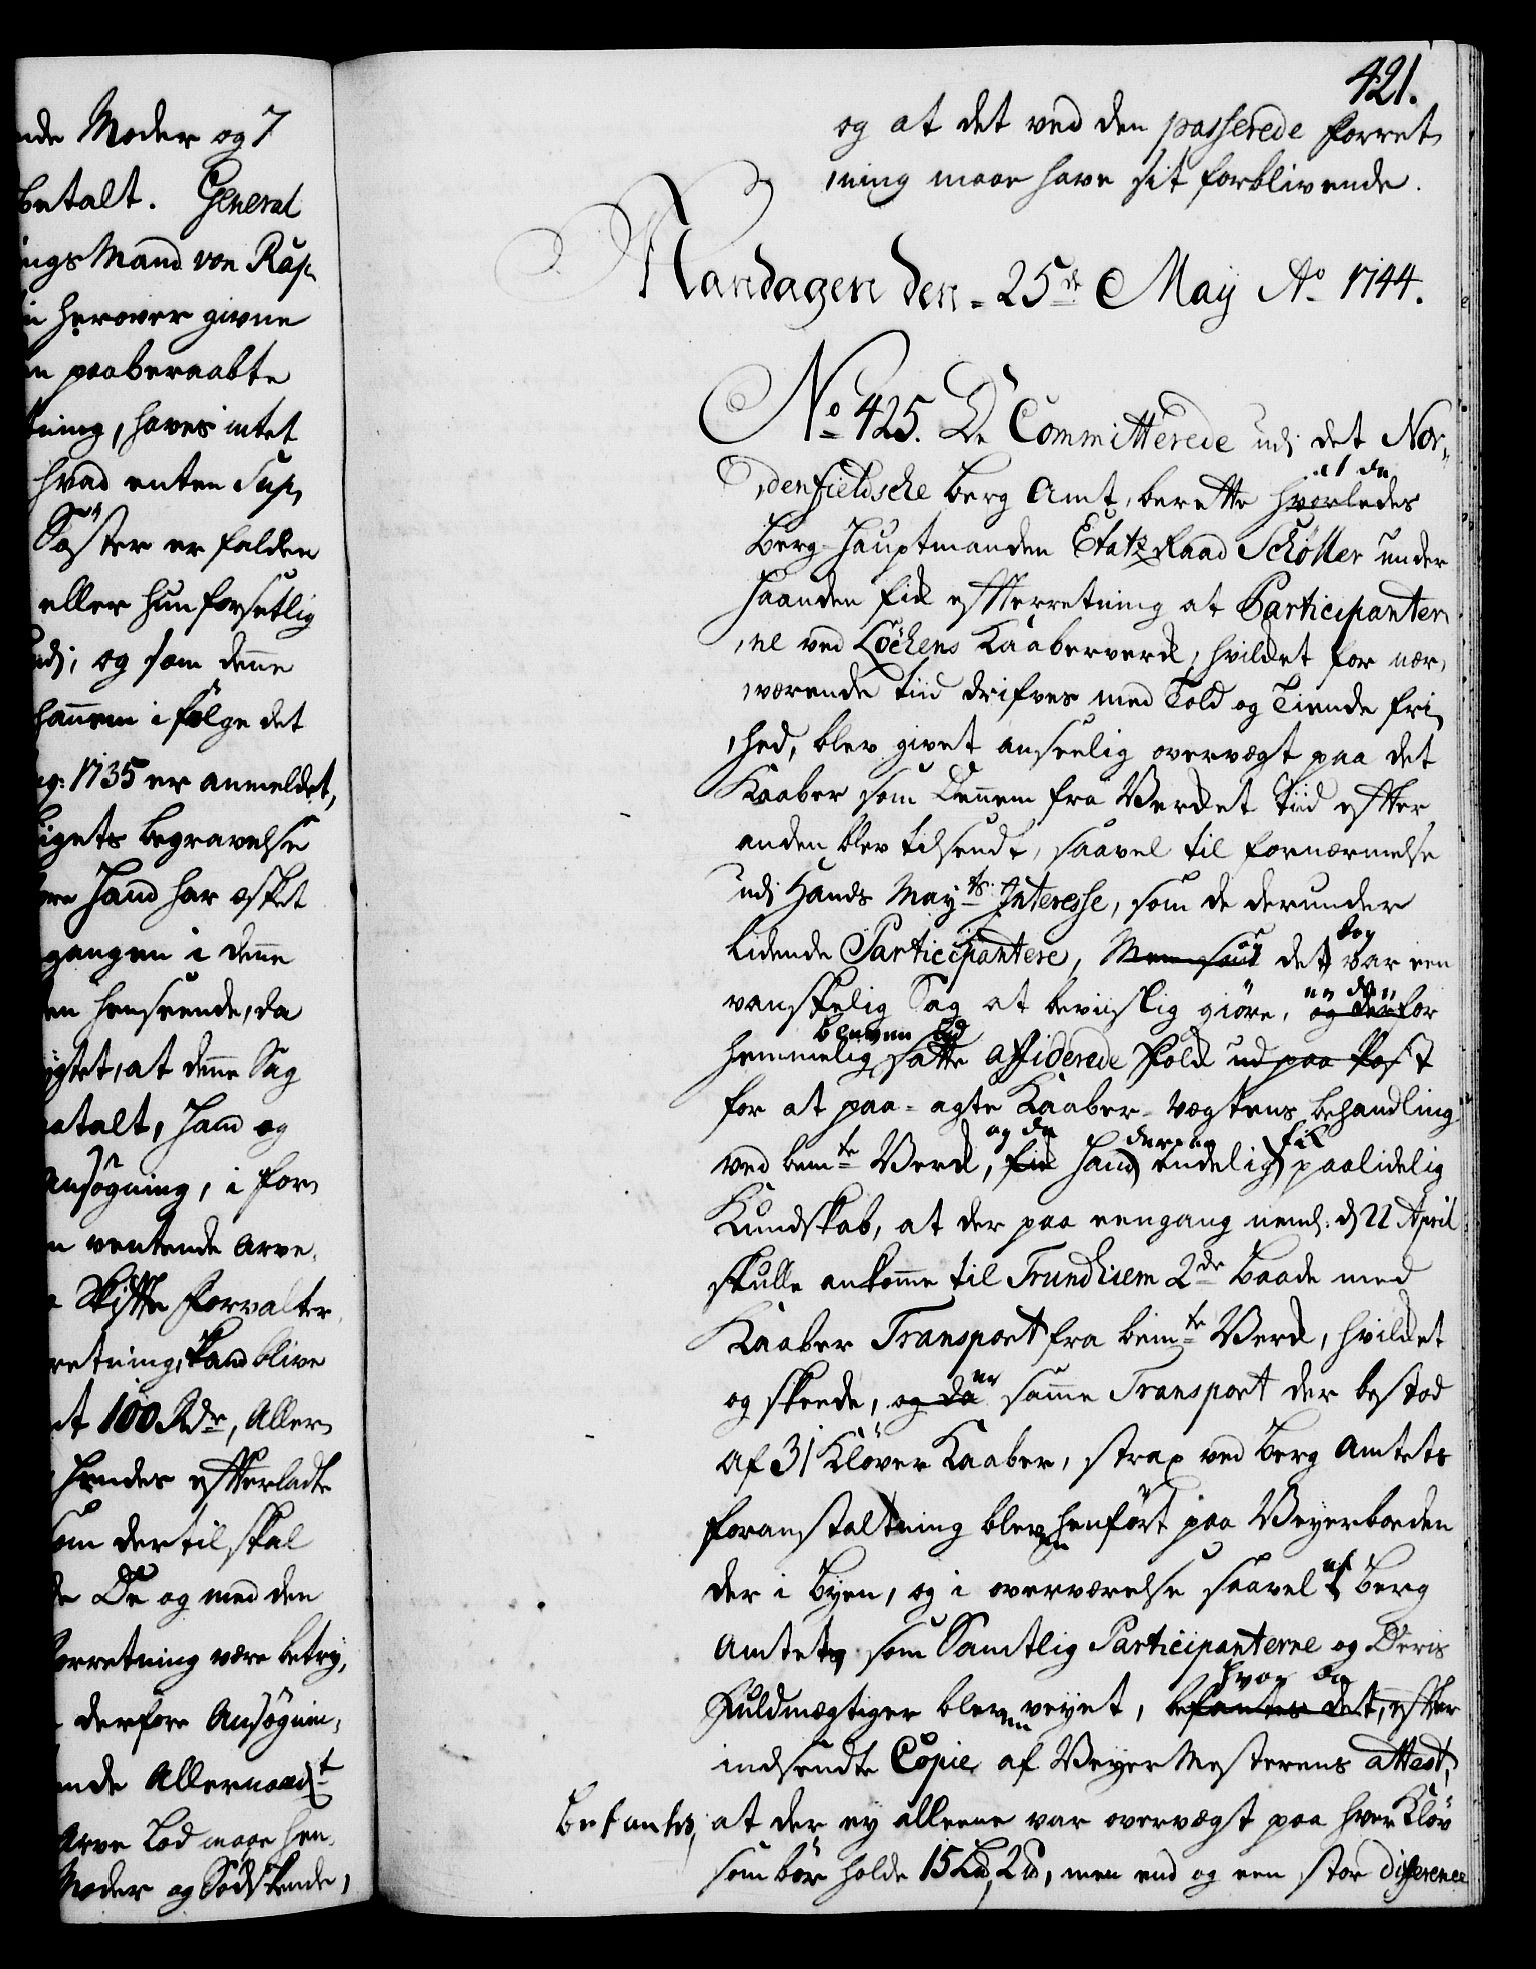 nde Moder og 7
betalt. General
ings Mand von Rap,
i herover givne
n paaberaabte
tning, haves intet
hvad enten Sup,
Söster er falden
eller hun forsetlig
udj, og som denne
hannem i fölge det
ng: 1735 er anmeldet,
ligets begravelse
ere Hand har æsket
gangen i denne
en henseende, da
ygtet, at denne Sag
betalt, Hand og
Ansögning, i for,
n ventende Arve,
Skifte forvalter,
retning, kand blive
et 100 Rdr, Aller,
hendes efterladte
som dertil skal
de De og med den
forretning være betry,
derfore Ansögnin,
ende Allernaadt
Arve Lod maae hen,
Moder og Södskende,
421.
og at det ved den passerede forret,
,ning maae have sit forblivende.
Mandagen den 25de Maij Ao 1744.
No 425. De Committerede udj det Nor,,
,denfieldsche Berg Amt, berette hvorledes
at da
Berg-Hauptmanden Etatz Raad Schöller under
Haanden fik efterretning at Participanter,
,ne ved Löchens Kaaberverk, hvilket for nær,
,værende tiid drifves med Told og Tiende fri,
,hed, blev givet anseelig overvægt paa det
Kaaber som Dennem fra Verket tiid efter
anden blev tilsendt, saavel til fornærmelse
udj Hands Mayts Interesse, som de derunder
lidende Participantere, Men saa det var een
dog
vanskelig Sag at beviislig giöre, og derfor
hemmelig satte afsiderede Folk ud paa Post
bleven
for at paa-agte Kaaber-Vægtens behandling
ved bemte Verk, fik Hand endelig paalidelig
og da derpaa fik
Kundskab, at der paa eengang neml: d 22 April
skulle ankomme til Trundhiem 2de Baade med
Kaaber Transport fra bemte Verk, hvilket
og skeede, og da samme Transport der bestod
er
af 31 Klöver Kaaber, strax ved Berg Amtets
foranstaltning bleven henfört paa Veyerboden
der i Byen, og i overværelse saavel af Berg
Amtet, som Samtlig Participanterne og Deris
Fuldmægtiger bleven veyet, befantes det, efter
hvor da
indsendte Copie af Veyer Mesterens attest,
befantes, at der ey alleene var overvægt paa hver Klöv
som bör holde 15 Ld 2 d, men end og een stor difference